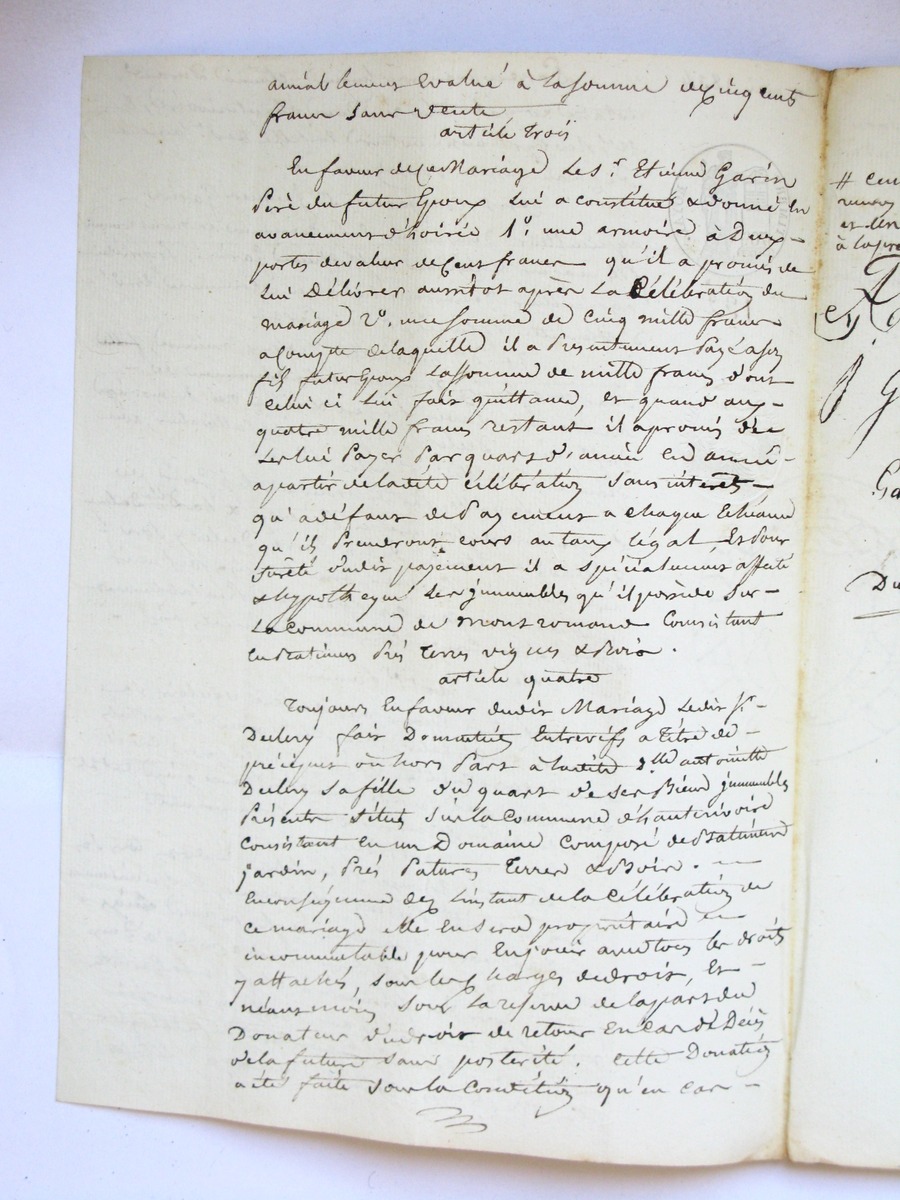 amiablement evalué à la somme de cinq cents
francs sans vente
article trois
En faveur de ce Mariage le Sr. Etienne Garin
Père du futur Epoux lui a constitué & donné en
avancement d'hoirie 1o. une armoire à Deux
portes de valeur de Cent francs qu'il a promis de
lui Délivrer aussitot après la Célébration du
mariage 2o. une somme de Cinq mille francs
acompte de laquelle il a Présentement Payé a son
fils futur Epoux la somme de mille francs dont
celui ci lui fait quittance, et quand aux
quatre mille francs restant il a promis de
les lui Payer Par quart d'année en année
apartir de ladite célébration sans intérêts
qu'a défaut de Payement a chaque Echéance
qu'ils Prendront cours au taux légal, Et Pour
sureté dudit payement il a spécialement affecté
& hypothequé les jmmeubles qu'il possède sur
la commune de montromand Consistant
En Batimens Prés Terres vignes & Bois.
article quatre
Toujours En faveur dudit Mariage Ledit Sr.
fait Donnation Entrevifs a Titre de
préciput ou hors Part à ladite Dlle antoinette
sa fille du quart de ses Biens jmmeubles
Présents situés sur la Commune d'hauterivoire
Consistant En un Domaine Composé de Batiments
jardin, Prés Patures Terres & Bois.
En conséquence dez l'instant de la Célébration de
ce mariage elle En sera propriétaire
incommutable pour En jouir avec tous les droits
y attachés, sous les charges de droit, Et
néanmoins sous la reserve de la part du
Donateur du droit de retour En Cas de Décès
de la future sans posterité. Cette Donation
a été faite sous la Condition qu'en cas
# 
renvoy
à la
Du